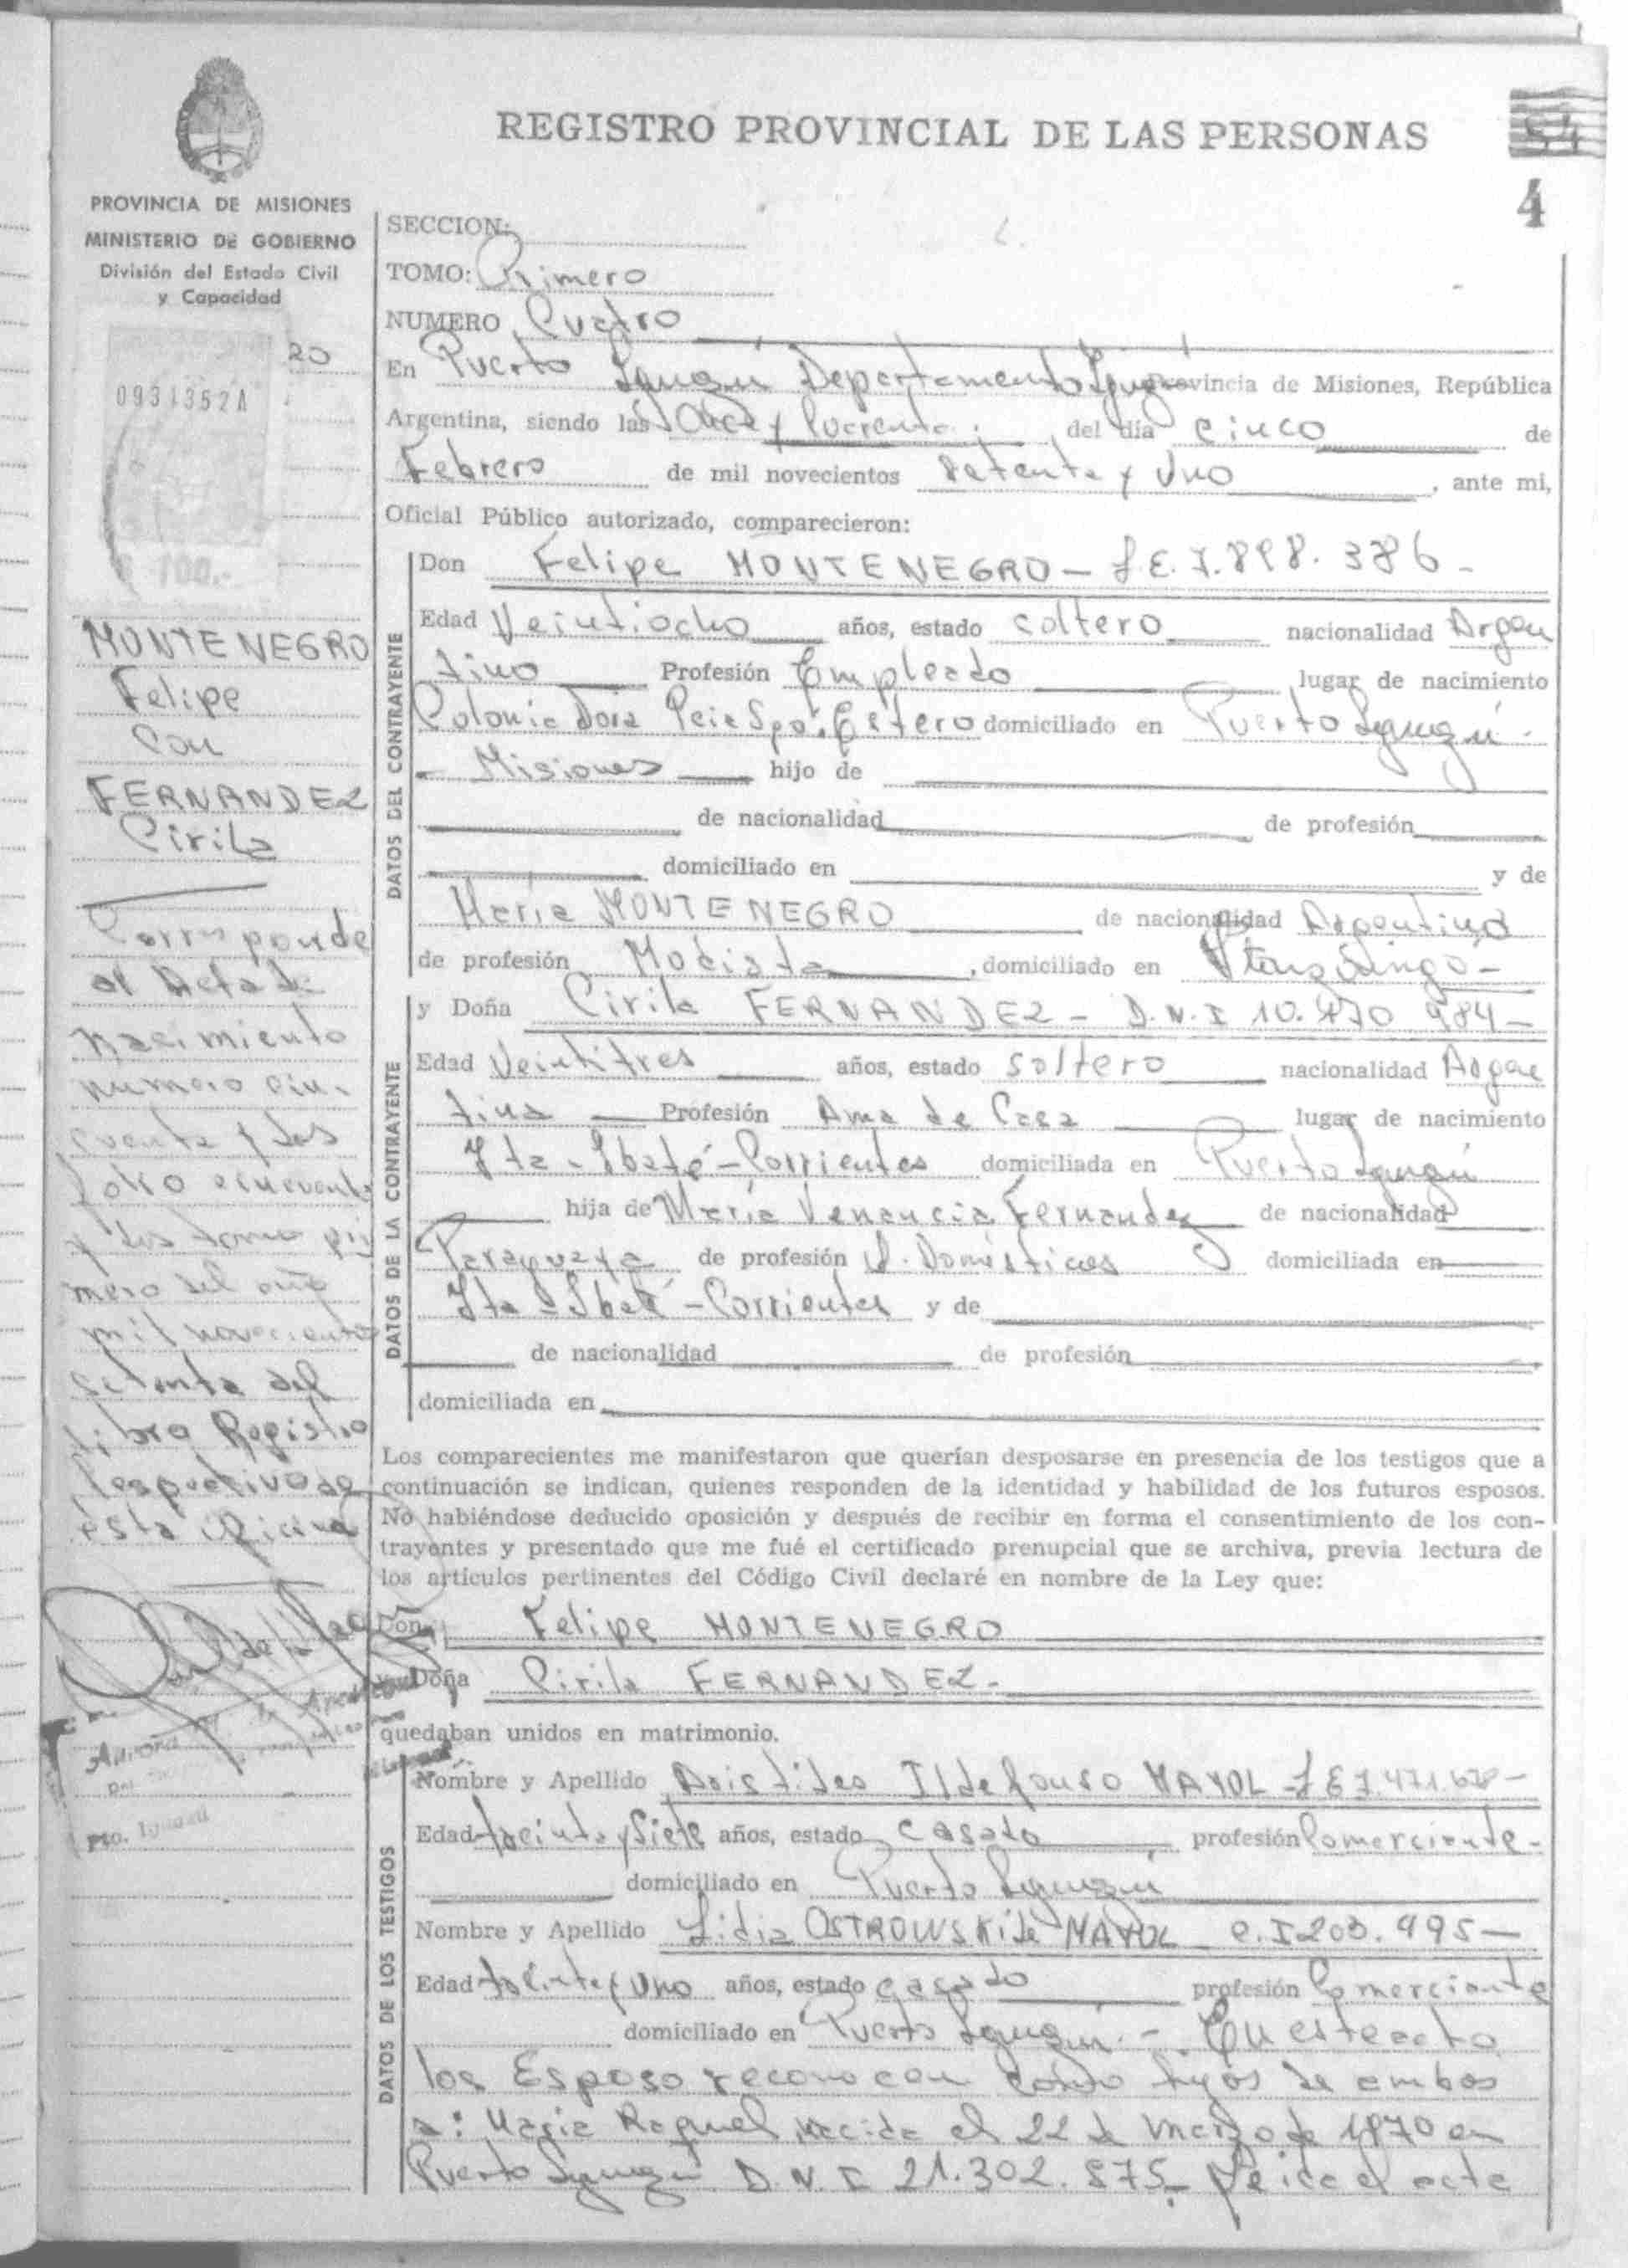 REGISTRO PROVINCIAL DE LAS PERSONAS
54
4
PROVINCIA DE MISIONES
MINISTERIO DE GOBIERNO
División del Estado Civil
y Capacidad
20
0931352A
100.-
MONTENEGRO
Felipe
con
FERNANDEZ
Cirila
Corresponde
al Acta de
nacimiento
numero cin-
cuenta y dos
folio cincuenta
y dos tomo pri
mero del año
mil novecientos
setenta del
libro Registro
respectivo de
esta oficina
Pto. Iguazú
SECCION:
TOMO: Primero
NUMERO Cuatro
En Puerto Iguazú Departamento Iguazú Provincia de Misiones, República
Argentina, siendo las Once y Cuarenta del día cinco de
Febrero de mil novecientos Setenta y Uno, ante mi,
Oficial Público autorizado, comparecieron:
DATOS DEL CONTRAYENTE
Don Felipe MONTENEGRO - L.E. 7.898.386 -
Edad Veintiocho años, estado soltero nacionalidad Argen
tino Profesión Empleado lugar de nacimiento
Colonia Dora Pcia Sgo. Estero domiciliado en Puerto Iguazú -
- Misiones hijo de
de nacionalidad de profesión
domiciliado en y de
Maria MONTENEGRO de nacionalidad Argentina
de profesión Modista, domiciliado en
DATOS DE LA CONTRAYENTE
y Doña Cirila FERNANDEZ - D.N.I 10.470 984 -
Edad Veintitres años, estado Soltero nacionalidad Argen
tina Profesión Ama de Casa lugar de nacimiento
Ita - Ibaté - Corrientes domiciliada en Puerto Iguazú
hija de María Venancia Fernandez de nacionalidad
Paraguaya de profesión Q. Domésticos domiciliada en
Ita - Ibaté - Corrientes y de
de nacionalidad de profesión
domiciliada en
Los comparecientes me manifestaron que querían desposarse en presencia de los testigos que a
continuación se indican, quienes responden de la identidad y habilidad de los futuros esposos.
No habiéndose deducido oposición y después de recibir en forma el consentimiento de los con-
trayentes y presentado que me fué el certificado prenupcial que se archiva, previa lectura de
los artículos pertinentes del Código Civil declaré en nombre de la Ley que:
Don Felipe MONTENEGRO
y Doña Cirila FERNANDEZ -
quedaban unidos en matrimonio.
DATOS DE LOS TESTIGOS
Nombre y Apellido Aristides Ildefonso MAYOL - L E 7.471.678 -
Edad treinta y Siete años, estado casado profesión Comerciante -
domiciliado en Puerto Iguazú
Nombre y Apellido Lidia OSTROWSKI de MAYOL C.I 203.995 -
Edad treinta y Uno años, estado casado profesión Comerciante
domiciliado en Puerto Iguazú. - En este acto
los Esposo reconocen como hijos de ambos
a: Maria Raquel nacida el 22 de Marzo de 1970 en
Puerto Iguazú D.N.I 21.302.875 - Leida el acta